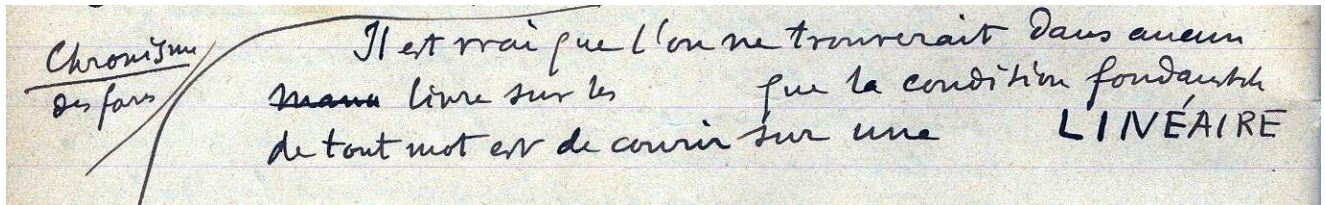 Chronisme
des
Il est vrai que l'on ne trouverait dans aucun
livre sur les que la condition fondamentale
de tout mot est de courir sur une LINÉAIRE